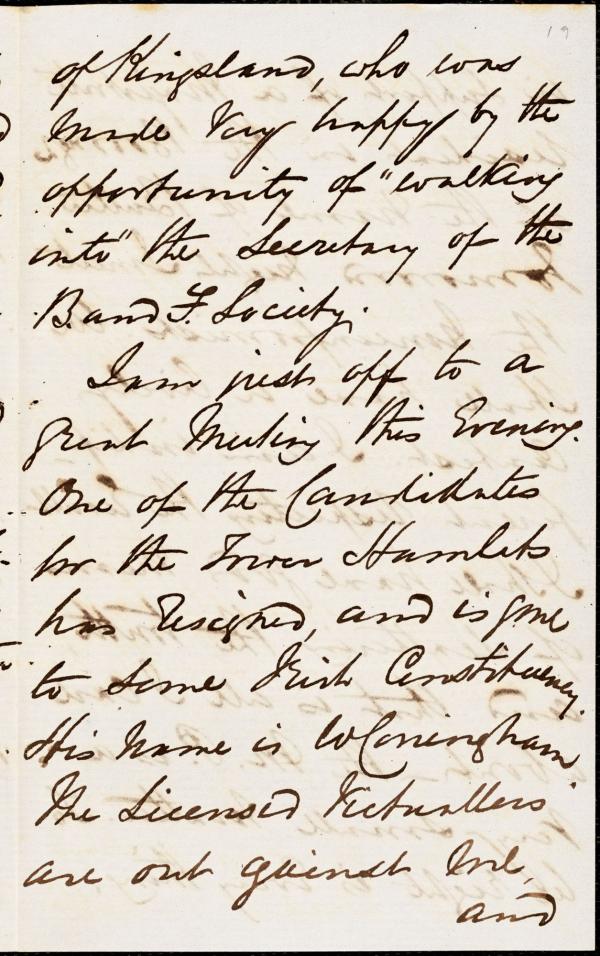 19
of Kingsland, who was
made very happy by the
opportunity of "walking
into" the Secretary of the
B. and F. Society.
I am just off to a
great Meeting this Evening.
One of the Candidates
for the Tower Hamlets
has resigned, and is gone
to some Irish Constituency.
His name is W Coningham
The Licensed Victuallers
are out against me,
and